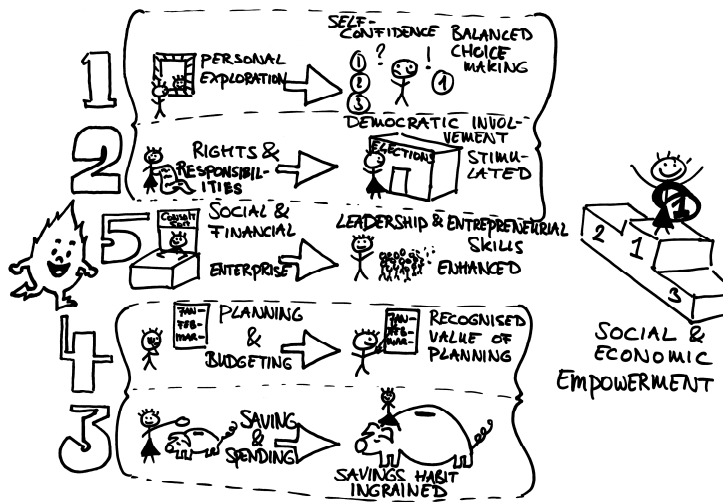 1
PERSONAL
EXPLORATION
SELF-
CONFIDENCE
BALANCED
CHOICE
MAKING
?
!
1
2
3
1
2
RIGHTS &
RESPONSIBIL-
ITIES
DEMOCRATIC INVOL-
VEMENT
STIMU-
LATED
ELECTIONS
5
SOCIAL &
FINANCIAL
ENTERPRISE
LEADERSHIP & ENTREPRENEURIAL
SKILLS
ENHANCED
4
JAN-
FEB-
MAR-
PLANNING
&
BUDGETING
JAN-
FEB-
MAR-
RECOGNISED
VALUE OF
PLANNING
3
SAVING
&
SPENDING
SAVINGS HABIT
INGRAINED
1
2
1
3
SOCIAL &
ECONOMIC
EMPOWERMENT